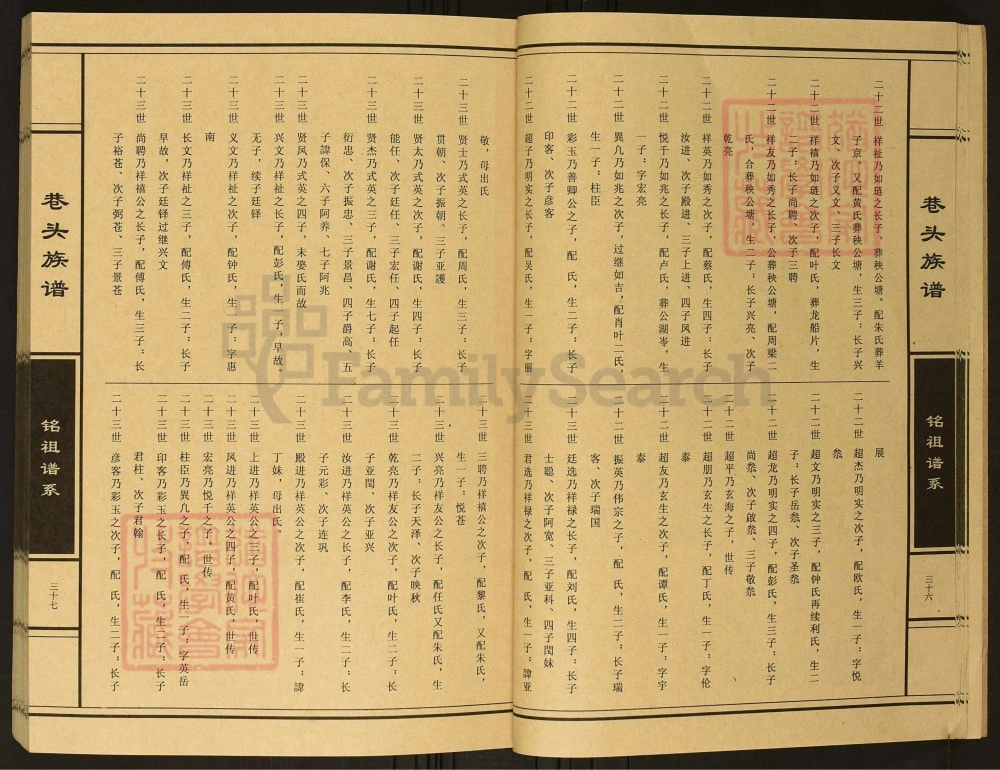 巷头族谱
铭祖谱系
三十六
二十二世 祥祉乃如琏之长子，葬秧公塘。配朱氏葬羊
子京，又配黄氏葬秧公塘，生三子：长子兴
文、次子义文、三子长文
二十二世 祥禧乃如琏之次子，配叶氏，葬龙船片，生
二子：长子尚聘、次子三聘
二十二世 祥友乃如秀之长子，公葬秧公塘，配周梁二
氏，合葬秧公塘，生二子：长子兴亮、次子
乾亮
二十二世 祥英乃如秀之次子，配蔡氏，生四子：长子
汝进、次子殿进、三子上进、四子凤进
二十二世 悦千乃如兆之长子，配卢氏，葬公湖岑，生
一子：字宏亮
二十二世 異几乃如兆之次子，过继如吉，配肖叶二氏，
生一子：柱臣
二十二世 彩玉乃善卿公之子，配 氏，生二子：长子
印客、次子彦客
二十二世 超子乃明实之长子，配吴氏，生一子：字丽
展
二十二世 超杰乃明实之次子，配欧氏，生一子：字悦
叅
二十二世 超文乃明实之三子，配钟氏再续利氏，生二
子：长子岳叅、次子圣叅
二十二世 超龙乃明实之四子，配彭氏，生三子：长子
尚叅、次子啟叅、三子敬叅
二十二世 超平乃为海之子，世传
二十二世 超朋乃玄生之长子，配丁氏，生一子：字伦
泰
二十二世 超友乃玄生之次子，配谭氏，生一子：字宇
泰
二十二世 振英乃伟宗之子，配 氏，生二子：长子瑞
客、次子瑞国
二十三世 廷选乃祥禄之长子，配刘氏，生四子：长子
士聪、次子阿宽、三子亚科、四子閏妹
二十三世 君选乃祥禄之次子，配 氏，生一子：諱亚
敬，母出氏
二十三世 贤士乃式英之长子，配周氏，生三子：长子
贯朝、次子振朝、三子亚護
二十三世 贤太乃式英之次子，配谢氏，生四子：长子
能任、次子廷任、三子宏任、四子起任
二十三世 贤杰乃式英之三子，配谢氏，生七子：长子
衍忠、次子振忠、三子景昌、四子爵高、五
子諱保、六子阿养、七子阿兆
二十三世 贤凤乃式英之四子，未娶氏而故
二十三世 兴文乃祥祉之长子，配彭氏，生一子，早故。
无子，续子廷铎
二十三世 义文乃祥祉之次子，配钟氏，生一子：字惠
南
二十三世 长文乃祥祉之三子，配傅氏，生二子：长子
早故，次子廷铎过继兴文
二十三世 尚聘乃祥禧公之长子，配傅氏，生三子：长
子裕苍、次子弼苍、三子景苍
二十三世 三聘乃祥禧公之次子，配黎氏，又配朱氏，
生一子：悦苍
二十三世 兴亮乃祥友公之长子，配任氏又配朱氏，生
二子：长子天泽、次子映秋
二十三世 乾亮乃祥友公之次子，配叶氏，生二子：长
子亚閏、次子亚兴
二十三世 汝进乃祥英公之长子，配李氏，生二子：长
子元彩、次子连巩
二十三世 殿进乃祥英公之次子，配崔氏，生一子：諱
丁妹，母出氏。
二十三世 上进乃祥英公之三子，配叶氏，世传
二十三世 凤进乃祥英公之四子，配黄氏，世传
二十三世 宏亮乃悦千之子。世传
二十三世 柱臣乃異几之子，配 氏，生一子：字英岳
二十三世 印客乃彩玉之长子，配 氏，生二子：长子
君柱、次子君翰
二十三世 彦客乃彩玉之次子，配 氏，生二子：长子
巷头族谱
铭祖谱系
三十七
FamilySearch